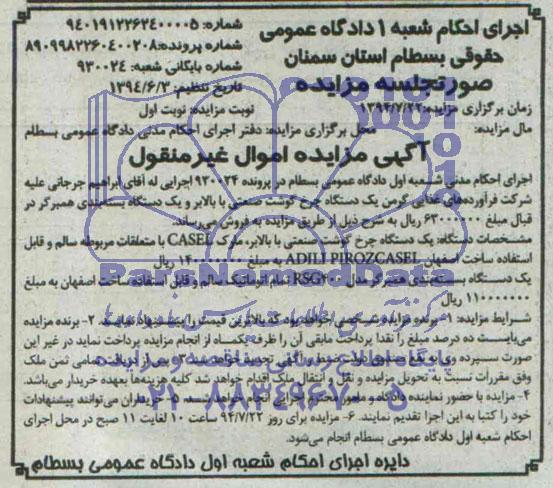 اجرای احکام شعبه ۱ دادگاه عمومی
حقوقی بسطام استان سمنان
صورتجلسه مزایده
شماره: ۹۴۰۱۹۱۲۲۶۲۴۰۰۰۰۵
شماره پرونده: ۸۹۰۹۹۸۲۲۶۰۴۰۰۲۰۸
شماره بایگانی شعبه: ۹۳۰۰۲۴
تاریخ تنظیم: ۱۳۹۴/۶/۳
زمان برگزاری مزایده: ۱۳۹۴/۷/۲۲ نوبت مزایده: نوبت اول
مال مزایده: محل برگزاری مزایده: دفتر اجرای احکام مدنی دادگاه عمومی بسطام
آگهی مزایده اموال غیرمنقول
اجرای احکام مدنی شعبه اول دادگاه عمومی بسطام در پرونده ۹۳۰۰۲۴ اجرایی له آقای ابراهیم جرجانی علیه
شرکت فرآورده‌های غذایی گرمن یک دستگاه چرخ گوشت صنعتی با بالابر و یک دستگاه بسته‌بندی همبرگر در
قبال مبلغ ۶۳۰۰۰۰۰۰ ریال به شرح ذیل از طریق مزایده به فروش می‌رساند.
مشخصات دستگاه: یک دستگاه چرخ گوشت صنعتی با بالابر، مارک CASEL با متعلقات مربوطه سالم و قابل
استفاده ساخت اصفهان ADILI PIROZCASEL به مبلغ ریال
یک دستگاه بسته‌بندی همبرگر مدل RSG۴۰۰ تمام اتوماتیک سالم و قابل استفاده ساخت اصفهان به مبلغ
۱۱۰۰۰۰۰۰۰ ریال
شرایط مزایده: ۱- برنده مزایده شخصی خواهد بود که بالاترین قیمت را پیشنهاد نمایند. ۲- برنده مزایده
می‌بایست ده درصد مبلغ را نقدا پرداخت مابقی آن را ظرف یکماه از انجام مزایده پرداخت نماید در غیر این
صورت سپرده وی به نفع صندوق دولت ضبط و آگهی تجدید خواهد شد. ۳- پس از دریافت تمامی ثمن ملک
وفق مقررات نسبت به تحویل مزایده و نقل و انتقال ملک اقدام خواهد شد کلیه هزینه‌ها بعهده خریدار می‌باشد.
۴- مزایده با حضور نماینده دادگاه و مامور محترم اجرایی انجام خواهد شد. ۵- خریداران می‌توانند پیشنهادات
خود را کتبا به این اجرا تقدیم نمایند. ۶- مزایده برای روز ۹۴/۷/۲۲ ساعت ۱۰ لغایت ۱۱ صبح در محل اجرای
احکام شعبه اول دادگاه عمومی بسطام انجام می‌شود.
دایره اجرای احکام شعبه اول دادگاه عمومی بسطام
ParsNamadData
پایگاه اطلاع رسانی مناقصه و مزایده
۰۲۱-۸۸۳۴۹۶۷۰-۵